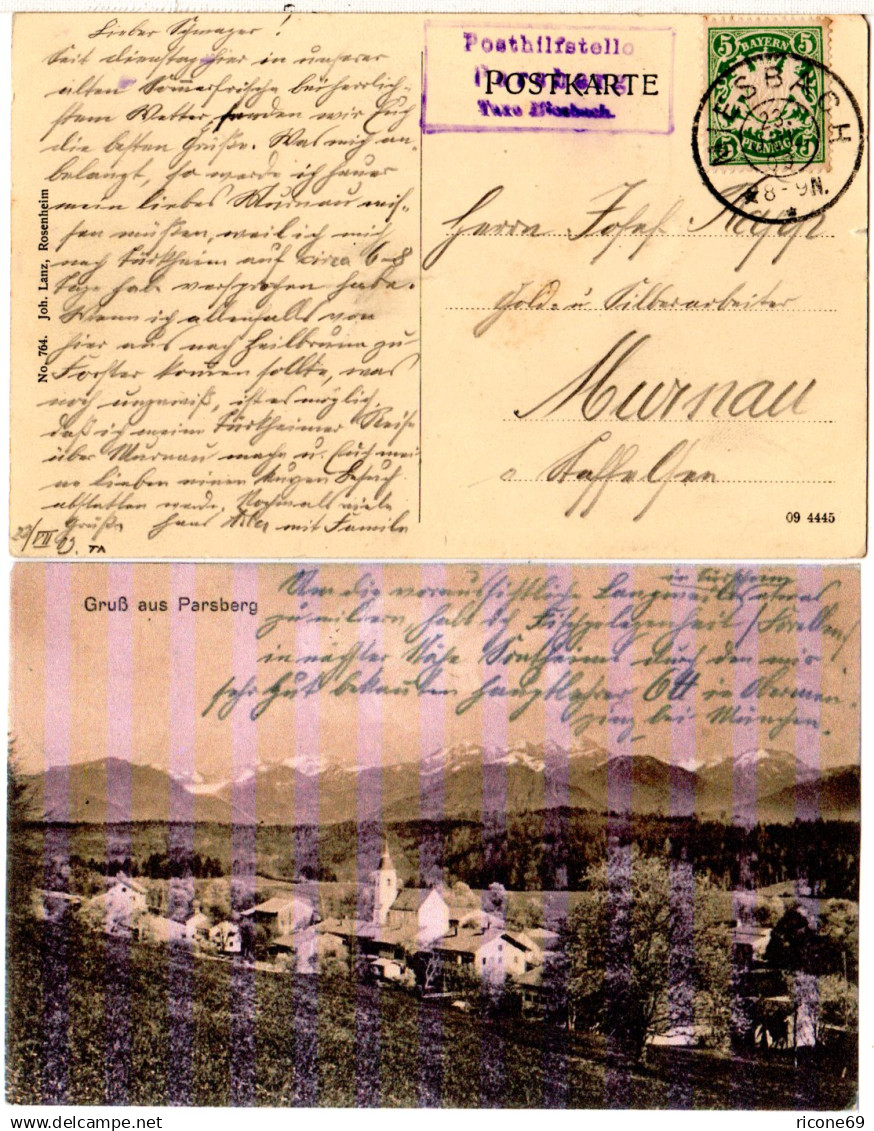 Lieber Schwager!
Seit Dienstag hier in unserer
alten Sommerfrische bei herrlich-
stem Wetter, senden wir Euch
die besten Grüße. Was mich an-
belangt, so werde ich heuer
mein liebes Murnau mis-
sen müßen, weil ich mich
nach Türkheim auf circa 6-8
Tage hab versprochen habe.
Wenn ich allenfalls von
hier aus nach Heilbrunn zu
Forster kommen sollte, was
noch ungewiß, ist es möglich,
daß ich meine Türkheimer Reise
über Murnau mache u. Euch mei-
ne Lieben einen kurzen Besuch
abstatten werde. Nochmals viele
Grüße Hans mit Familie
No. 764. Joh. Lanz, Rosenheim
Posthilfstelle
Parsberg
Taxe Miesbach.
POSTKARTE
5 BAYERN 5
5 PFENNIG 5
MIESBACH
23.
8-9N.
Herrn Josef
Gold- u Silberarbeiter
Murnau
a Staffelsee
09 4445
Gruß aus Parsberg
in Türkheim
Um die voraussichtliche Langweile etwas
zu mildern, habe ich Fischgelegenheit (Forellen)
in nächster Nähe durch den mir
sehr gut bekannten Hauptlehrer Ott in Obermen-
zing bei München.
www.delcampe.net
ricone69